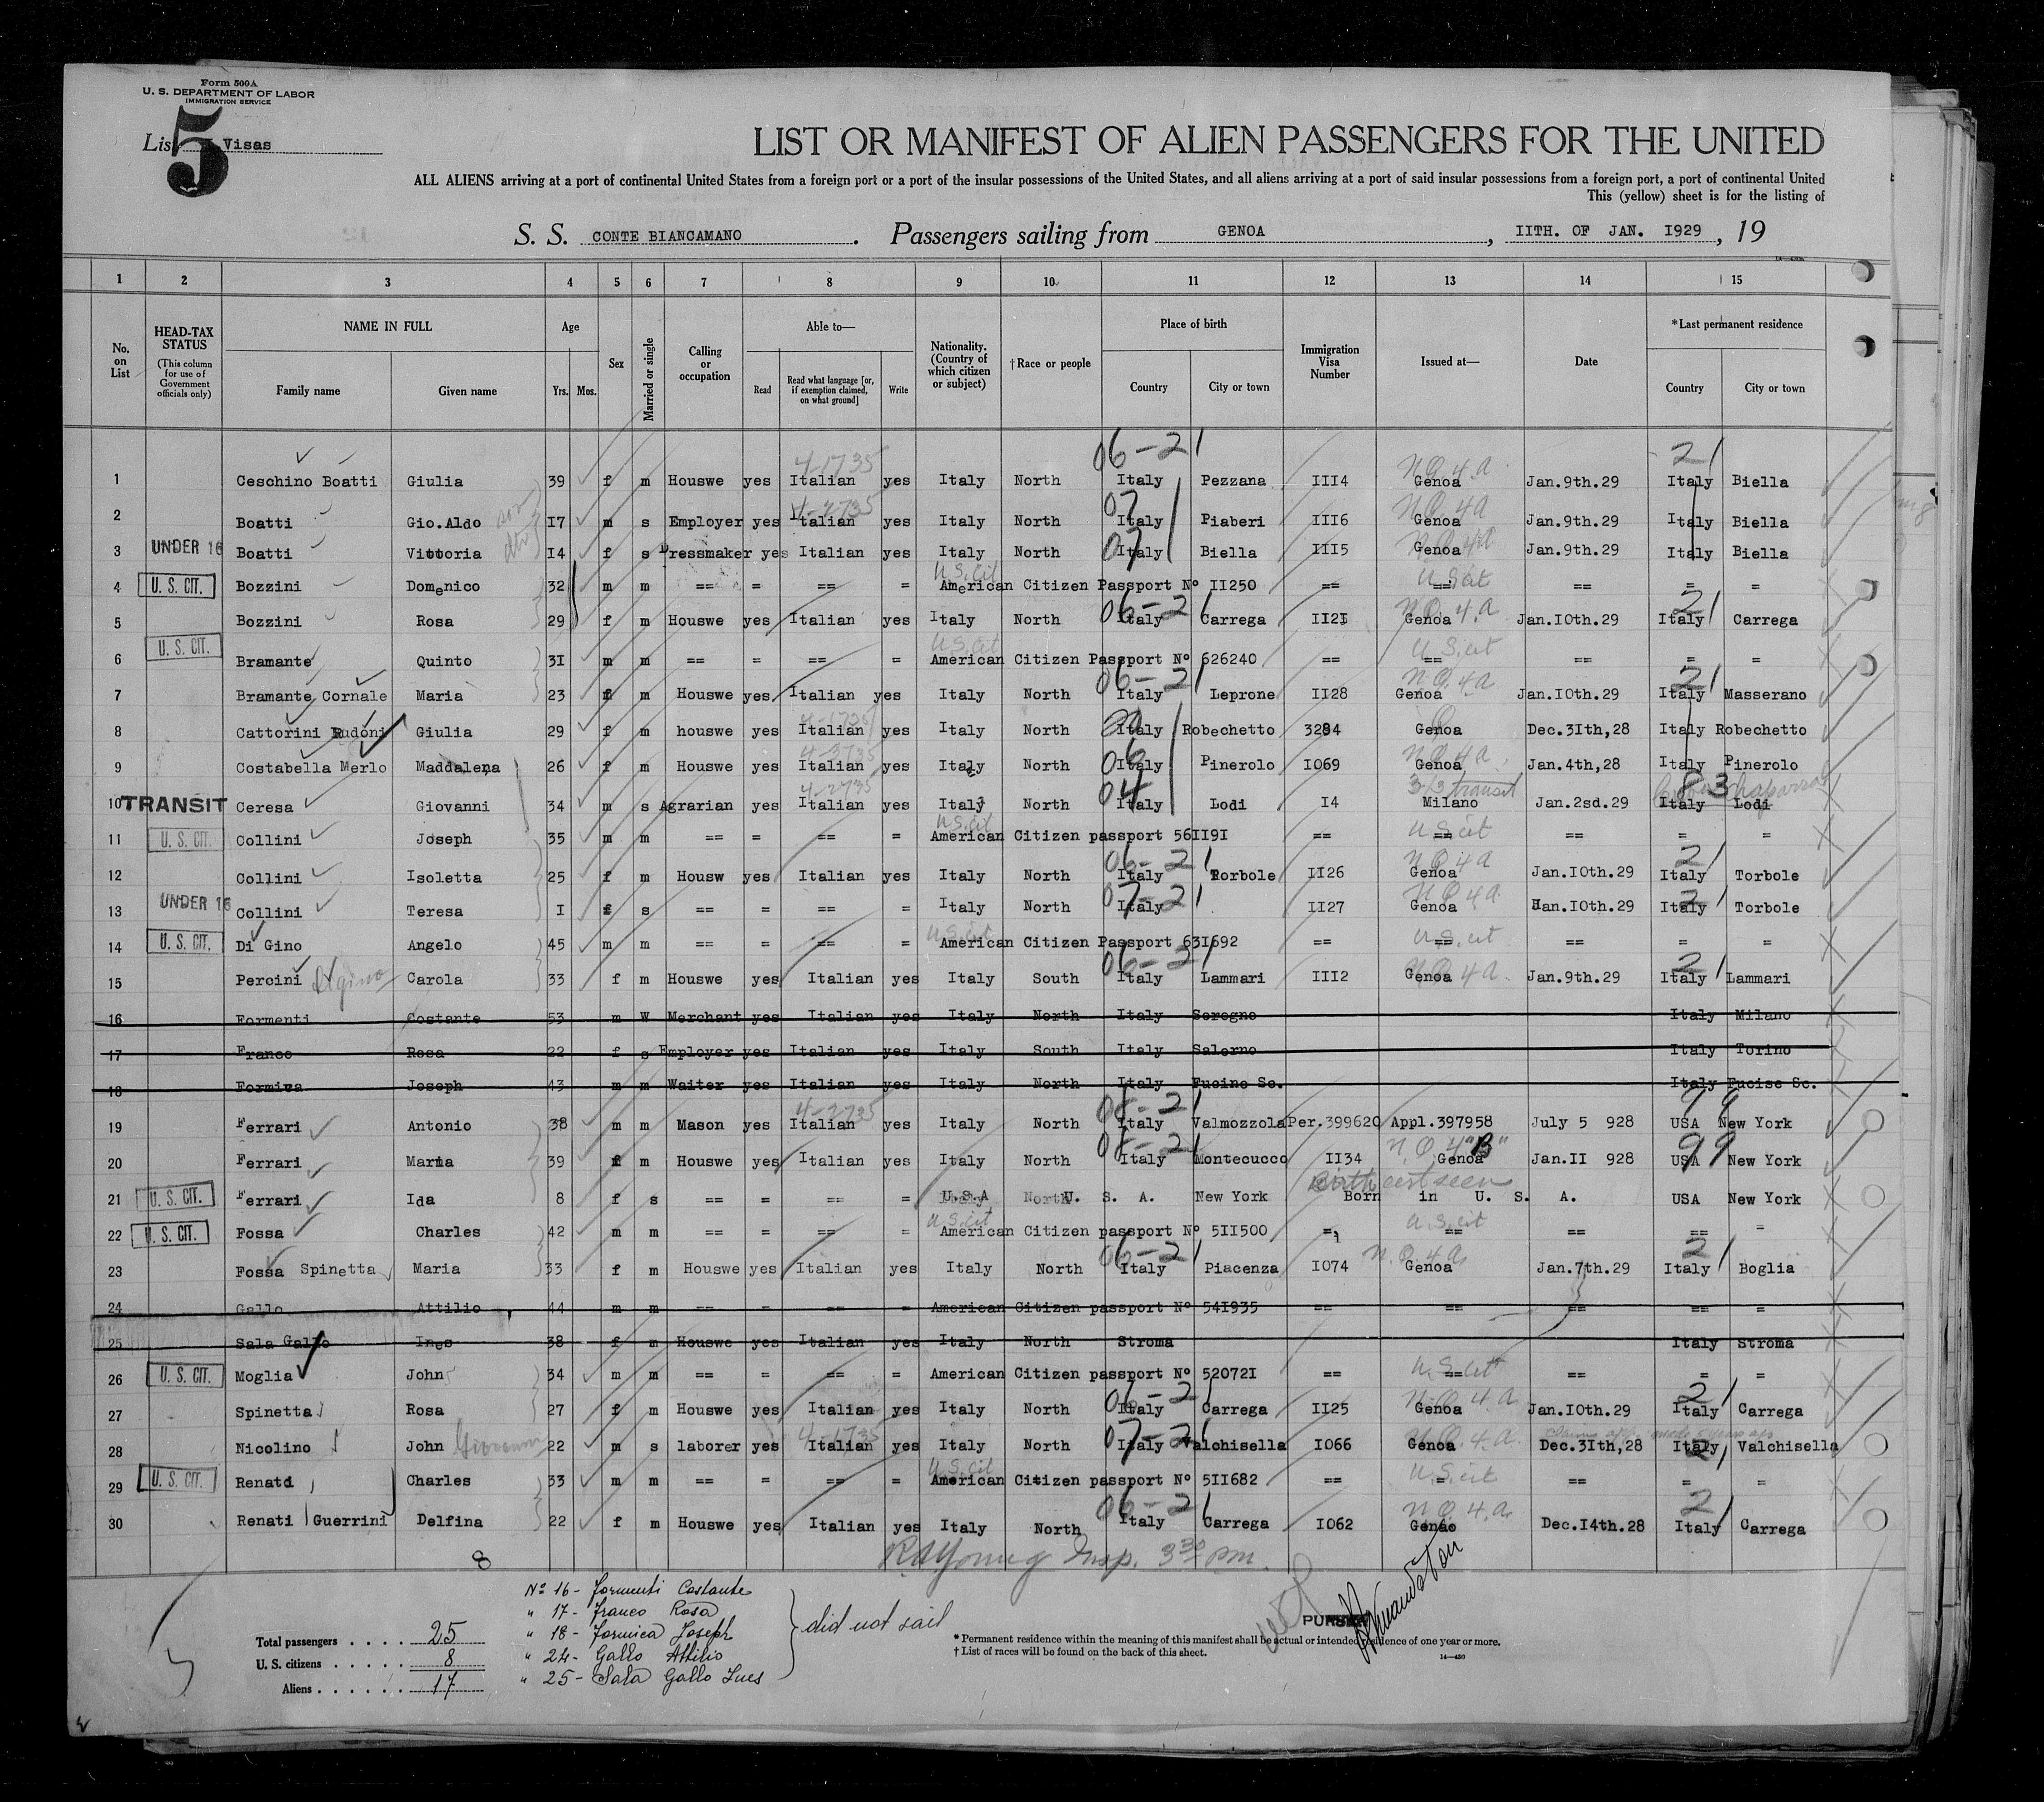 Form 500A
U. S. DEPARTMENT OF LABOR
IMMIGRATION SERVICE
List 5 Visas
LIST OR MANIFEST OF ALIEN PASSENGERS FOR THE UNITED
ALL ALIENS arriving at a port of continental United States from a foreign port or a port of the insular possessions of the United States, and all aliens arriving at a port of said insular possessions from a foreign port, a port of continental United
This (yellow) sheet is for the listing of
S. S. CONTE BIANCAMANO. Passengers sailing from GENOA, IITH. OF JAN. I929, 19
1 2 3 4 5 6 7 8 9 10 11 12 13 14 15
No. on List
HEAD-TAX STATUS (This column for use of Government officials only)
NAME IN FULL Family name Given name
Age Yrs. Mos.
Sex
Married or single
Calling or occupation
Able to— Read Read what language [or, if exemption claimed, on what ground] Write
Nationality. (Country of which citizen or subject)
†Race or people
Place of birth Country City or town
Immigration Visa Number
Issued at—
Date
*Last permanent residence Country City or town
06-21 4-1735 N.Q.4.a 21
1 Ceschino Boatti Giulia 39 f m Houswe yes Italian yes Italy North Italy Pezzana III4 Genoa Jan.9th.29 Italy Biella
07 4-2735 N.Q.4a
2 Boatti Gio.Aldo son I7 m s Employer yes Italian yes Italy North Italy Piaberi III6 Genoa Jan.9th.29 Italy Biella
07 N.Q.4a
3 UNDER 16 Boatti Vittoria I4 f s Dressmaker yes Italian yes Italy North Italy Biella III5 Genoa Jan.9th.29 Italy Biella
U.S.Cit U.S.cit
4 U. S. CIT. Bozzini Domenico 32 m m == = == = American Citizen Passport Nº II250 == == == = =
06-21 N.Q.4.a 21
5 Bozzini Rosa 29 f m Houswe yes Italian yes Italy North Italy Carrega II2I Genoa Jan.IOth.29 Italy Carrega
U.S.Cit U.S.cit
6 U. S. CIT. Bramante Quinto 3I m m == = == = American Citizen Passport Nº 626240 == == == = =
06-21 N.Q.4a 21
7 Bramante Cornale Maria 23 f m Houswe yes Italian yes Italy North Italy Leprone II28 Genoa Jan.IOth.29 Italy Masserano
4-1735
8 Cattorini Rudoni Giulia 29 f m houswe yes Italian yes Italy North Italy Robechetto 3284 Genoa Dec.3Ith,28 Italy Robechetto
06 4-3735 N.Q.4a.
9 Costabella Merlo Maddalena 26 f m Houswe yes Italian yes Italy North Italy Pinerolo I069 Genoa Jan.4th,28 Italy Pinerolo
04 4-2735 3-(3 transit 83
10 TRANSIT Ceresa Giovanni 34 m s Agrarian yes Italian yes Italy North Italy Lodi I4 Milano Jan.2sd.29 Italy Lodi
U.S.cit U.S.cit
11 U. S. CIT. Collini Joseph 35 m m == = == = American Citizen passport 56II9I == == == = =
06-21 N.Q.4a 21
12 Collini Isoletta 25 f m Housw yes Italian yes Italy North Italy Torbole II26 Genoa Jan.IOth.29 Italy Torbole
07-21 N.Q.4a. 2
13 UNDER 16 Collini Teresa I f s == = == = Italy North Italy II27 Genoa Jan.IOth.29 Italy Torbole
U.S.cit U.S.cit
14 U. S. CIT. Di Gino Angelo 45 m m == = == = American Citizen Passport 63I692 == == == = =
06-21 N.Q.4a. 21
15 Percini Digino Carola 33 f m Houswe yes Italian yes Italy South Italy Lammari III2 Genoa Jan.9th.29 Italy Lammari
16 Formenti Costante 53 m W Merchant yes Italian yes Italy North Italy Seregno Italy Milano
17 Franco Rosa 22 f s Employer yes Italian yes Italy South Italy Salerno Italy Torino
18 Formica Joseph 43 m m Waiter yes Italian yes Italy North Italy Fucine Sc. Italy Fucise Sc.
06-21 4-2735 99
19 Ferrari Antonio 38 m m Mason yes Italian yes Italy North Italy Valmozzola Per.399620 Appl.397958 July 5 928 USA New York
06-21 N.Q.4"B" 99
20 Ferrari Maria 39 f m Houswe yes Italian yes Italy North Italy Montecucco II34 Genoa Jan.II 928 USA New York
Birth cert seen
21 U. S. CIT. Ferrari Ida 8 f s == = == = U.S.A North U. S. A. New York Born in U. S. A. USA New York
U.S.cit U.S.cit
22 U. S. CIT. Fossa Charles 42 m m == = == = American Citizen passport Nº 5II500 == == == == =
06-21 N.Q.4a. 21
23 Fossa Spinetta Maria 33 f m Houswe yes Italian yes Italy North Italy Piacenza I074 Genoa Jan.7th.29 Italy Boglia
24 Gallo Attilio 44 m m == = == = American Citizen passport Nº 54I935 == == == == =
25 Sala Gallo Ines 38 f m Houswe yes Italian yes Italy North Stroma Italy Stroma
U.S.cit
26 U. S. CIT. Moglia John 34 m m == = == = American Citizen passport Nº 52072I == == == = =
06-21 N.Q.4.a 21
27 Spinetta Rosa 27 f m Houswe yes Italian yes Italy North Italy Carrega II25 Genoa Jan.IOth.29 Italy Carrega
07-21 4-1735 N.Q.4.a.
28 Nicolino John Giovanni 22 m s laborer yes Italian yes Italy North Italy Valchisella I066 Genoa Dec.3Ith,28 Italy Valchisella
U.S.cit U.S.cit 21
29 U. S. CIT. Renati Charles 33 m m == = == = American Citizen passport Nº 5II682 == = == = =
06-21 N.Q.4.a. 21
30 Renati Guerrini Delfina 22 f m Houswe yes Italian yes Italy North Italy Carrega I062 Genáo Dec.I4th.28 Italy Carrega
8 RAYoung Insp. 3 30 pm.
Nº 16 - Formenti Costante
" 17 - Franco Rosa
" 18 - Formica Joseph
" 24 - Gallo Attilio
" 25 - Sala Gallo Ines
did not sail
Total passengers . . . . 25
U. S. citizens . . . . . 8
Aliens . . . . . . 17
PURSER
* Permanent residence within the meaning of this manifest shall be actual or intended residence of one year or more.
† List of races will be found on the back of this sheet.
14—430